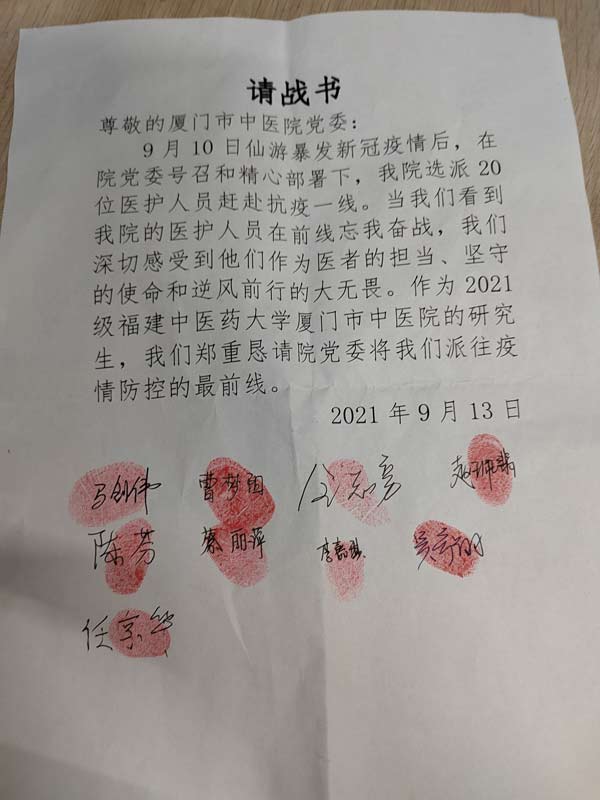 请战书
尊敬的厦门市中医院党委：
9月10日仙游暴发新冠疫情后，在
院党委号召和精心部署下，我院选派20
位医护人员赶赴抗疫一线。当我们看到
我院的医护人员在前线忘我奋战，我们
深切感受到他们作为医者的担当、坚守
的使命和逆风前行的大无畏。作为2021
级福建中医药大学厦门市中医院的研究
生，我们郑重恳请院党委将我们派往疫
情防控的最前线。
2021年9月13日
曹梦园
陈芬 蔡丽萍